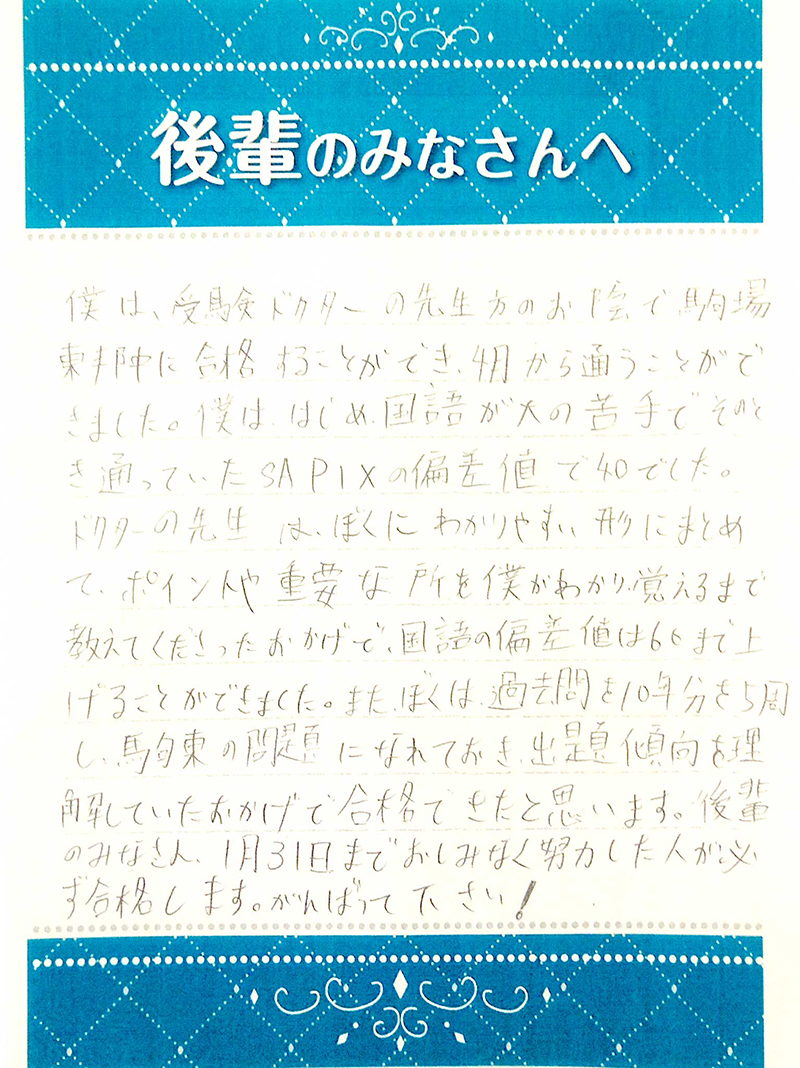 後輩のみなさんへ
僕は、受験ドクターの先生方のお陰で駒場
東邦中に合格することができ、4月から通うことがで
きました。僕は、はじめ、国語が大の苦手でそのと
き通っていたSAPIXの偏差値で40でした。
ドクターの先生は、ぼくにわかりやすい形にまとめ
て、ポイントや重要な所を僕がわかり、覚えるまで
教えてくださったおかげで、国語の偏差値は60まで上
げることができました。また、ぼくは、過去問を10年分を5周
し、駒東の問題になれておき、出題傾向を理
解していたおかげで合格できたと思います。後輩
のみなさん、1月31日までおしみなく努力した人が必
ず合格します。がんばって下さい!